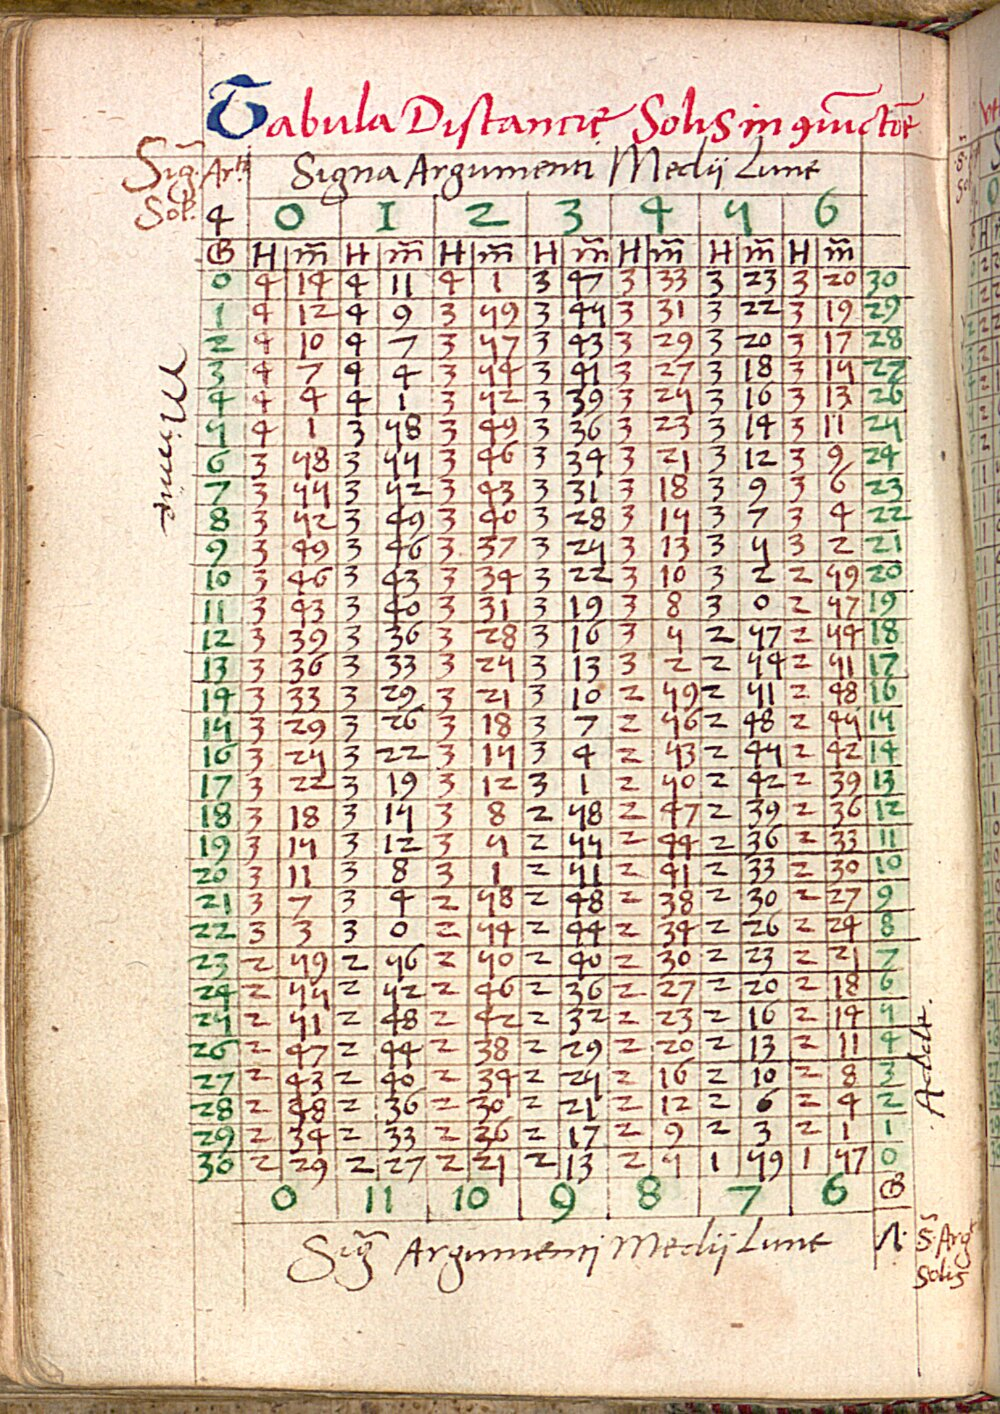 Tabula Distancie Solis in ꝯiūctōe
Sig̃. Art̃i Signa Argumenti Medij Lune
Sol. 4 0 1 2 3 4 5 6
G H m̃ H m̃ H m̃ H m̃ H m̃ H m̃ H m̃
0 4 14 4 11 4 1 3 47 3 33 3 23 3 20 30
1 4 12 4 9 3 59 3 45 3 31 3 22 3 19 29
2 4 10 4 7 3 57 3 43 3 29 3 20 3 17 28
3 4 7 4 4 3 54 3 41 3 27 3 18 3 15 27
4 4 4 4 1 3 52 3 39 3 25 3 16 3 13 26
5 4 1 3 58 3 49 3 36 3 23 3 14 3 11 25
6 3 58 3 55 3 46 3 34 3 21 3 12 3 9 24
7 3 55 3 52 3 43 3 31 3 18 3 9 3 6 23
8 3 52 3 49 3 40 3 28 3 15 3 7 3 4 22
9 3 49 3 46 3 37 3 25 3 13 3 5 3 2 21
10 3 46 3 43 3 34 3 22 3 10 3 2 2 59 20
11 3 43 3 40 3 31 3 19 3 8 3 0 2 57 19
12 3 39 3 36 3 28 3 16 3 5 2 57 2 54 18
13 3 36 3 33 3 25 3 13 3 2 2 54 2 51 17
14 3 33 3 29 3 21 3 10 2 59 2 51 2 48 16
15 3 29 3 26 3 18 3 7 2 56 2 48 2 45 15
16 3 25 3 22 3 15 3 4 2 53 2 45 2 42 14
17 3 22 3 19 3 12 3 1 2 50 2 42 2 39 13
18 3 18 3 15 3 8 2 58 2 47 2 39 2 36 12
19 3 15 3 12 3 5 2 55 2 44 2 36 2 33 11
20 3 11 3 8 3 1 2 51 2 41 2 33 2 30 10
21 3 7 3 4 2 58 2 48 2 38 2 30 2 27 9
22 3 3 3 0 2 54 2 44 2 34 2 26 2 24 8
23 2 59 2 56 2 50 2 40 2 30 2 23 2 21 7
24 2 55 2 52 2 46 2 36 2 27 2 20 2 18 6
25 2 51 2 48 2 42 2 32 2 23 2 16 2 14 5
26 2 47 2 44 2 38 2 29 2 20 2 13 2 11 4
27 2 43 2 40 2 34 2 25 2 16 2 10 2 8 3
28 2 48 2 36 2 30 2 21 2 12 2 6 2 4 2
29 2 34 2 33 2 26 2 17 2 9 2 3 2 1 1
30 2 29 2 27 2 21 2 13 2 5 1 59 1 57 0
0 11 10 9 8 7 6 G
Sig̃ Argumenti Medij Lune Λ. S̃. Argt
Solis
Minue
Adde